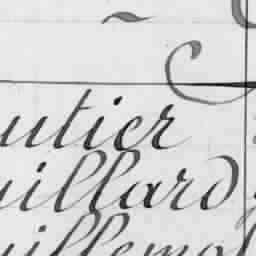 utier
uillard
uillemot